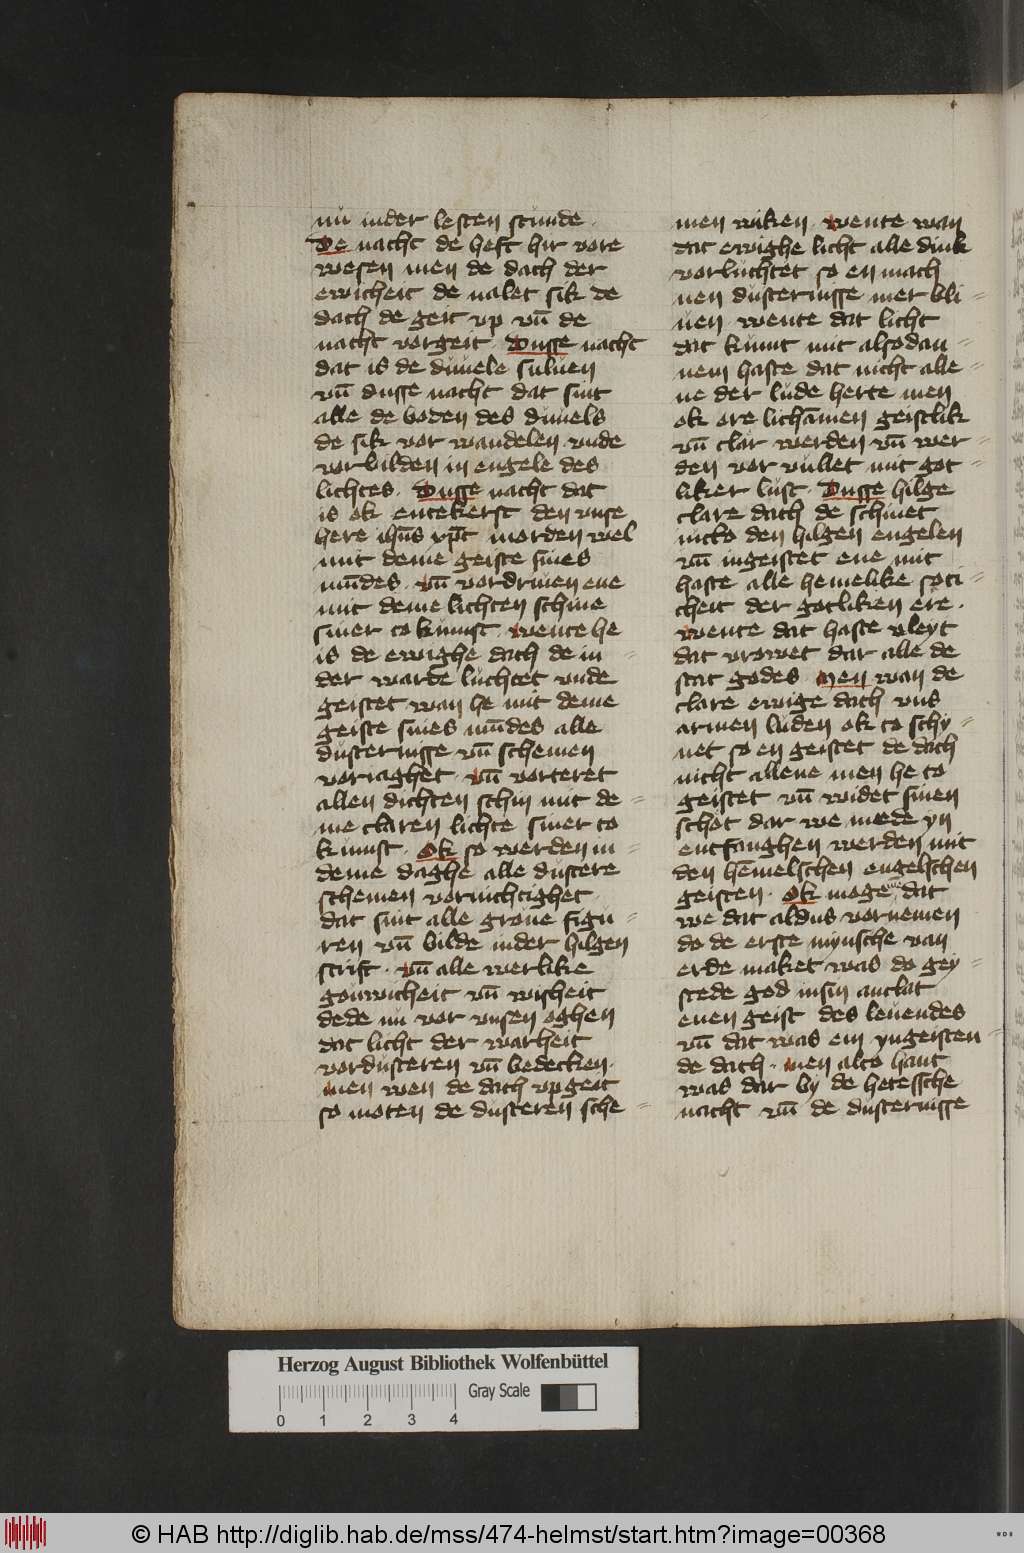 nu inder lesten stunde
De nacht de heft hir vore
wesen men de dach der
ewicheit de nalet sik de
dach de geit vp vn̄ de
nacht vorgeit · Dusse nacht
dat is de duuele suluen
vn̄ dusse nacht dat sint
alle de boden des duuels
de sik vor wandelen vnde
vorbilden in engele des
lichtes · Dusse nacht dat
is ok entekerst den vnse
here ihūs xp̄c morden wel
mit deme geiste sines
mūdes · vn̄ vordriuen ene
mit deme lichten schine
siner to kumst · wente he
is de ewighe dach de in
der warde luchtet vnde
geistet wan he mit deme
geiste sines mūdes alle
dusternisse vn̄ schemen
voriaghet · vn̄ vorteret
allen dichten schin mit de=
me claren lichte siner to
kumst · Ok so werden in=
deme daghe alle dustere
schemen vornichtighet
dat sint alle groue figu=
ren vn̄ bilde inder hilgen
scrift · vn̄ alle werlike
gouwicheit vn̄ wisheit
dede nu vor vnsen oghen
dat licht der warheit
vordusteren vn̄ bedecken ·
men wen de dach vpgeit
so moten de dusteren sche=
men wiken · wente wan
dat ewighe licht alle dink
vorluchtet so en mach
nen dusternisse mer bli=
uen wente dat licht
dat kumt mit alsodan=
nem haste dat nicht alle=
ne der lude herte men
ok ore lichāmen geistlik
vn̄ clar werden vn̄ wer=
den vor vullet mit got=
liker lust · Dusse hilge
clare dach de schinet
nicto den hilgen engelen
vn̄ ingeistet ene mit
haste alle hemelike soti=
cheit der gotliken ere ·
wente dat haste vleyt
dat vrowet dar alle de
stat godes · Men wan de
clare ewige dach vns
armen luden ok to schy=
net so en geistet de dach
nicht allene men he to
geistet vn̄ widet sinen
schot dar we mede yn
entfanghen werden mit
den hēmelschen engelschen
geisten · Ok moge we dat
we dat aldus vornemen
do de erste mynsche van
erde maket was do gey=
stede god insin antlat
enen geist des leuendes
vn̄ dat was ein yngeisten=
de dach · men alto hant
was dar by de hetessche
nacht vn̄ de dusternisse
Herzog August Bibliothek Wolfenbüttel
0 1 2 3 4 Gray Scale
© HAB http://diglib.hab.de/mss/474-helmst/start.htm?image=00368